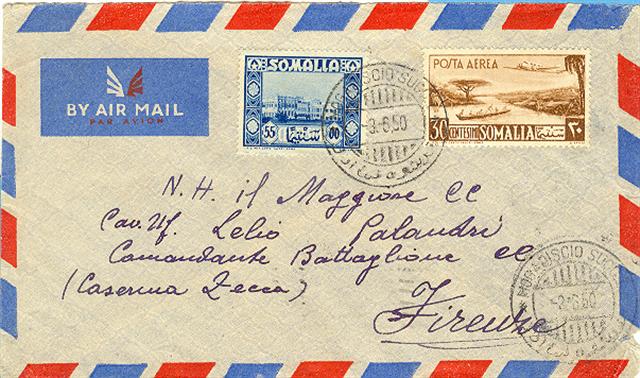 BY AIR MAIL
PAR AVION
SOMALIA
55 00
POSTA AEREA
30 CENTESIMI SOMALIA ٣٠
MOGADISCIO SUCC
-3.6.50
N.H. il Maggiore CC
Cav. Uf. Lelio Palandri
Comandante Battaglione CC
(Caserma Zecca)
Firenze
MOGADISCIO SUCC
6.50